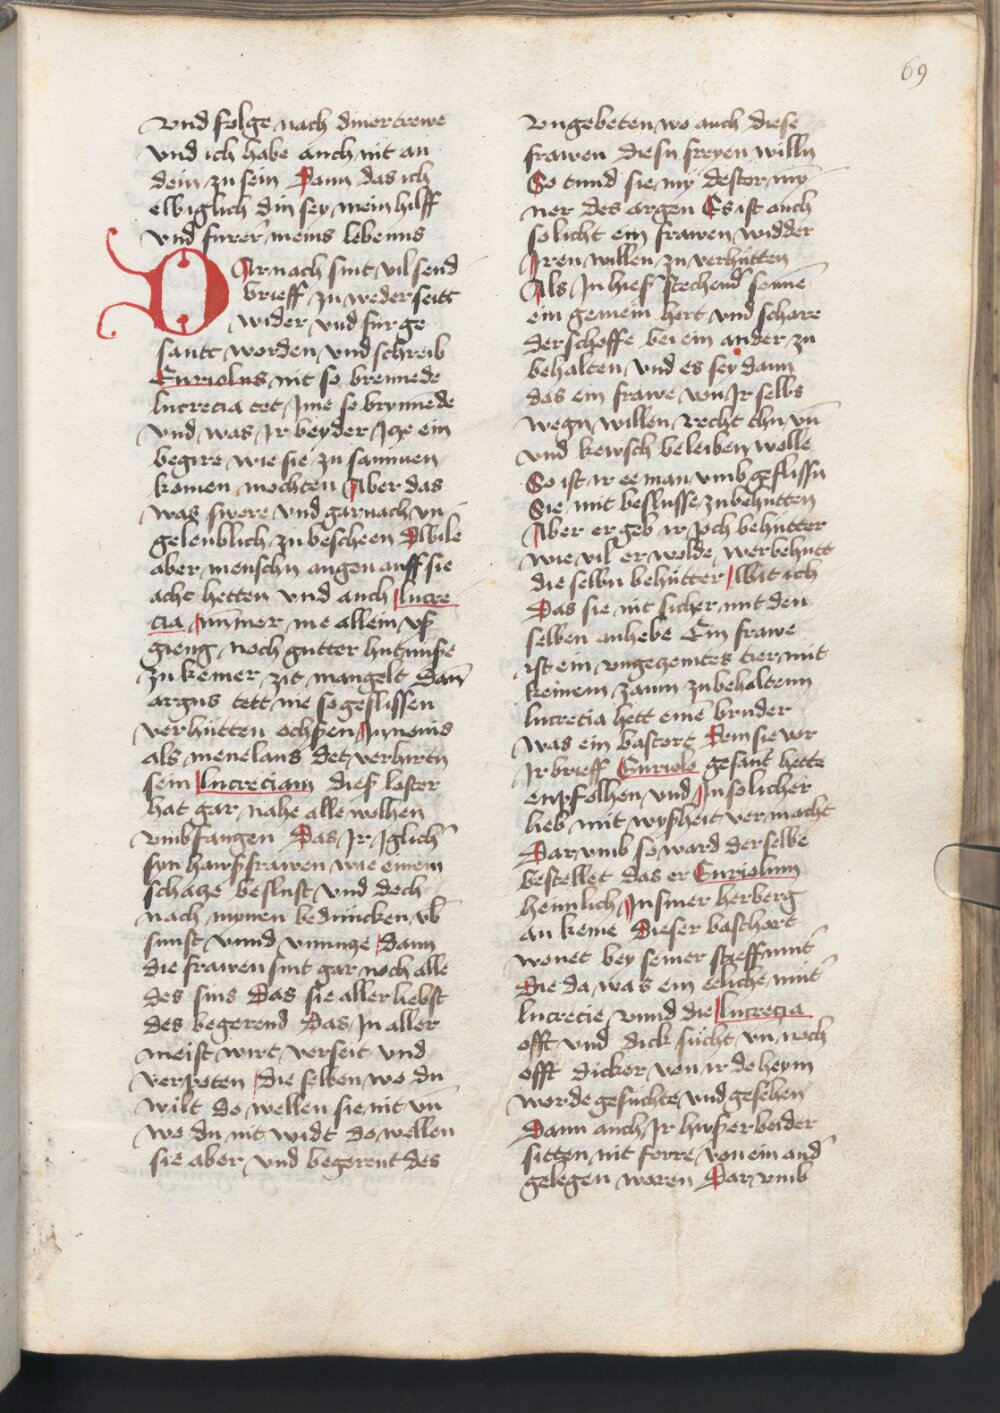 69
vnd folge nach diner trewe
vnd ich habe auch nit an
dein zu sein Dann das ich
ewiglich din sey mein hilff
vnd furer meins lebenns
DArnach sint vil send
brieff zu weder seitt
wider vnd fur ge
santt worden vnd schreib
Euriolus nit so brennede
lucrecia tet Jme so brynnede
vnd was Jr beyder Jtze ein
begire wie sie zu sammen
komen mochten Aber das
was swere vnd garnach vn
geleublich zu bescheen Alwile
aber menschn augen auff sie
acht hetten vnd auch lucre
cia nimmer me allein vß
gieng noch gutter hutnuße
zu keiner zit mangelt Dan
argus tett nie so geflissen
verhutten ochssen Junonis
als menelaus det verhirtn
sein lucreciam dieß laster
hat gar nahe alle welhen
vmbfangen Das Jr Jglich
syn hawßfrawen wie einem
schatze beslust vnd doch
nach mynen beduncken vb
sunst vnnd vnnutze dann
die frawen sint gar noch alle
des sins Das sie aller liebst
des begerend Das Jn aller
meist wirt verseit vnd
verpoten die selben wo du
wilt do wellen sie nit vn
wo du nit widt do wellen
sie aber vnd begerent des
vngebeten wo auch diese
frawen diesn freyen willn
So tund sie my dester my
ner des argen Es ist auch
so licht ein frawen widder
Jren willen zu verhutten
Als Jn hieß stechend sonne
ein gemein hert vnd schare
der schoffe bei ein ander zu
behalten vnd es sey dann
das ein frawe von Jr selbs
wegn willen recht thu vn
vnd kewsch beleiben wolle
So ist ir ee man vmb geflissn
Sie mit beslusse zu behutten
Aber er geb ir joch behutter
wie vil er wolde wer behutt
die selbn behutter Wit ich
Das sie nit sicher mit den
selben anhebe Ein frawe
ist ein vngezemtes tier mit
keinem zaun zu behaltenn
lucrecia hett eine bruder
was ein bastort Dem sie vor
Jr brieff Euriolo gesant hette
enpfolhen vnd Jn solicher
lieb mit wyßheit vermacht
Dar vmb so ward der selbe
bestellet das er Euriolum
heimlich Jn siner herberg
an keme Dieser basthart
wonet bey seiner stieffmut
Die da was ein eeliche mut
lucrecie vnnd die lucrecia
offt vnd dick sucht vn noch
offt dicker von ir do heym
worde gesucht vnd gesehen
Dann auch Jr hußer beider
sitten nit ferre von ein and
gelegen waren Dar vmb